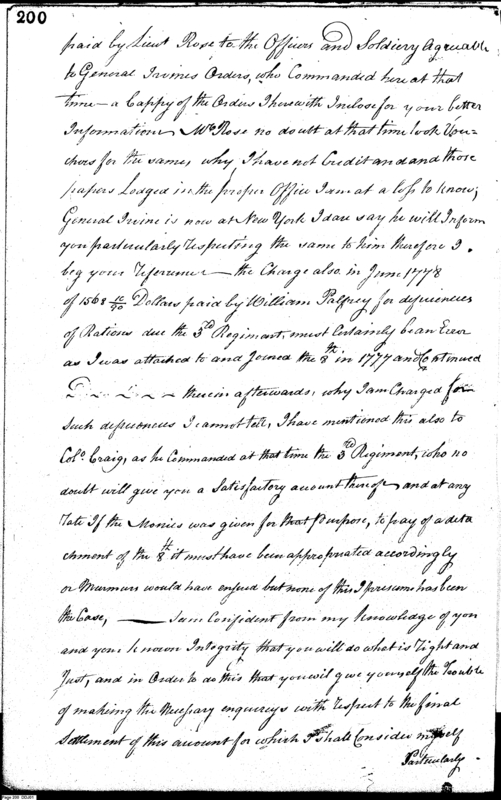 200
paid by Lieut Rose to the Officers and Soldiery Agreuable
to General Irvines Orders, who Commanded here at that
time — a Coppy of the Orders I herewith Inclose for your better
Information Mr Rose no doubt at that time took Vou-
chers for the same, why I have not Credit and and those
papers Lodged in the proper Office I am at a loss to know;
General Irvine is now at New York I dare say he will Inform
you particularly respecting the same to him therefore I
beg your referance — the Charge also in June 1778
of 1568 10/90 Dollars paid by William Palfrey for deficiencies
of Rations due the 3rd Regiment, must Certainly be an Error
as I was attached to and Joined the 8th in 1777 and Continued
therein afterwards, why I am Charged for
such deficiences I cannot tell, I have mentioned this also to
Colo Craig, as he Commanded at that time the 3rd Regiment, who no
doubt will give you a Satisfactory account thereof and at any
rate If the Monies was given for that Purpose, to pay of a deta
chment of the 8th it must have been appropriated accordingly
or Murmurs would have ensued but none of this I presume has been
the Case, — I am Confident from my knowledge of you
and your known Integrity that you will do what is right and
Just, and in Order to do this that you will give yourself the Trouble
of making the Nessesary enqureys with respect to the final
Settlement of this account for which I shall Consider myself
Particularly
Page 200 DDJ01